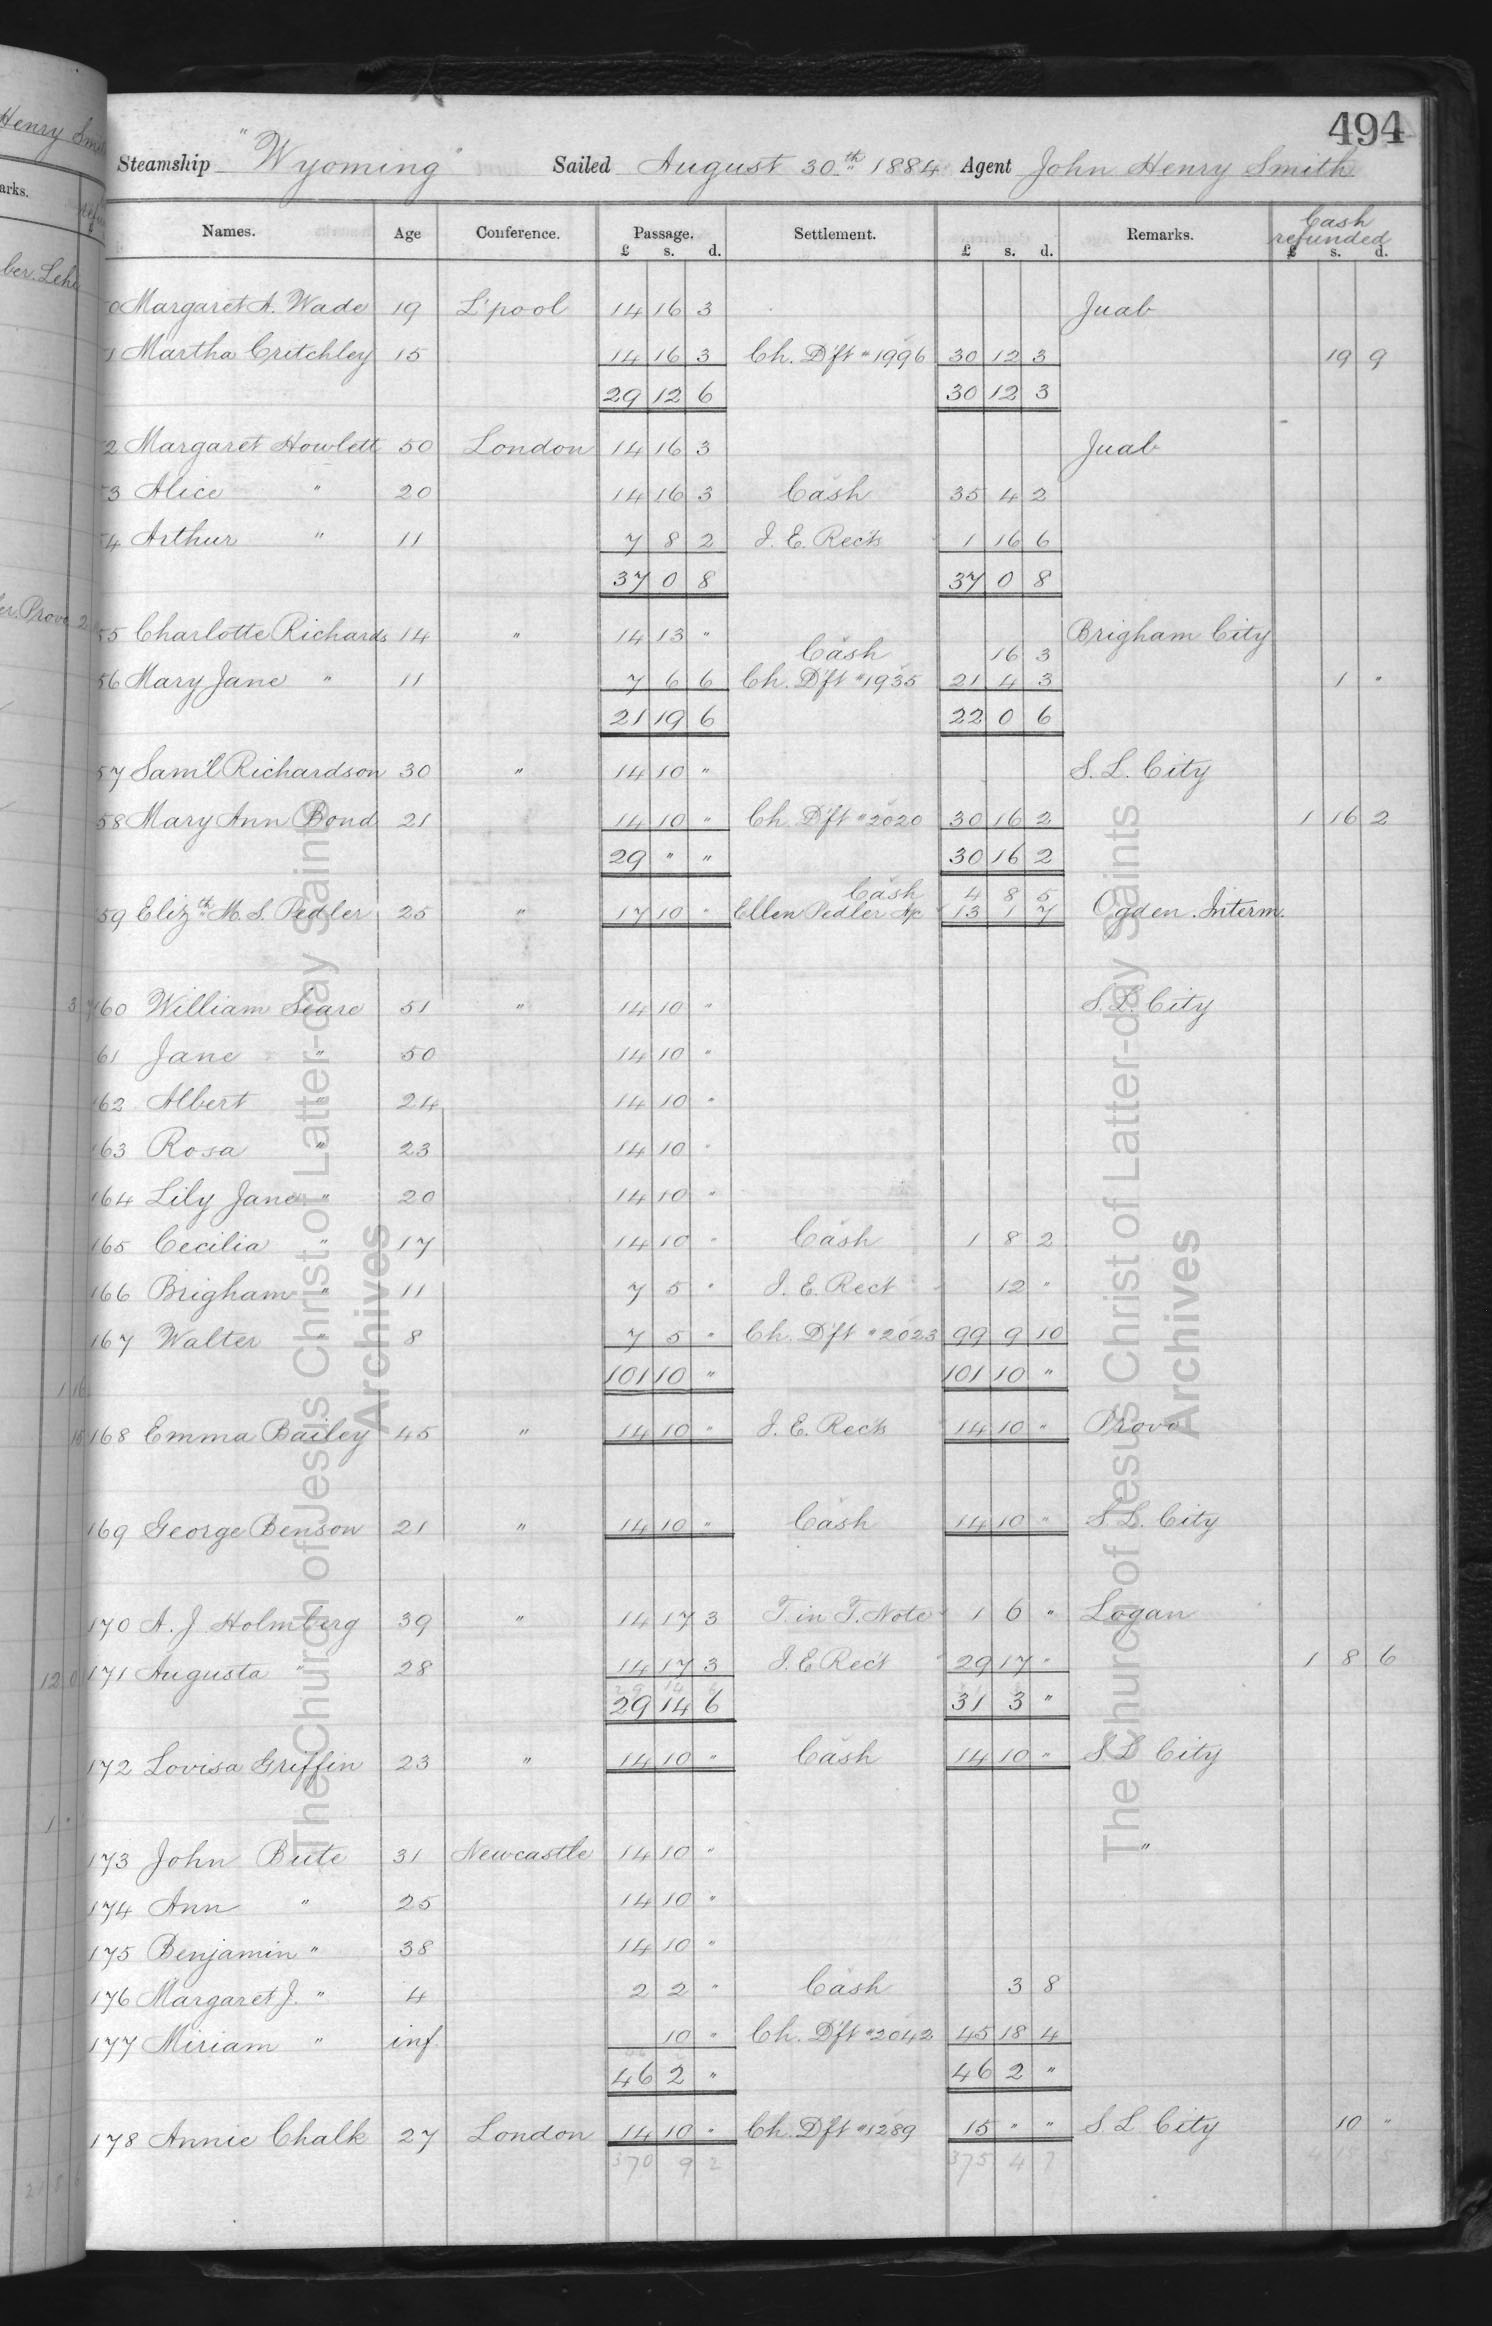 494
Steamship "Wyoming" Sailed August 30th 1884 Agent John Henry Smith
Names. Age Conference. Passage. Settlement. Remarks. Cash refunded
£ s. d. £ s. d. £ s. d.
0 Margaret A. Wade 19 L'pool 14 16 3 Juab
1 Martha Critchley 15 14 16 3 Ch. D'ft " 1996 30 12 3 19 9
29 12 6 30 12 3
2 Margaret Howlett 50 London 14 16 3 Juab
53 Alice " 20 14 16 3 Cash 35 4 2
54 Arthur " 11 7 8 2 I. E. Recs 1 16 6
37 0 8 37 0 8
55 Charlotte Richards 14 " 14 13 " Brigham City
Cash 16 3
56 Mary Jane " 11 7 6 6 Ch. D'ft " 1935 21 4 3 1 "
21 19 6 22 0 6
57 Sam'l Richardson 30 " 14 10 " S. L. City
58 Mary Ann Bond 21 14 10 " Ch. D'ft " 2020 30 16 2 1 16 2
29 " " 30 16 2
Cash 4 8 5
59 Elizth M. S. Pedler 25 " 17 10 " Ellen Pedler A/c 13 1 7 Ogden. Interm.
160 William Seare 51 " 14 10 " S. L. City
61 Jane " 50 14 10 "
162 Albert " 24 14 10 "
163 Rosa " 23 14 10 "
164 Lily Jane " 20 14 10 "
165 Cecilia " 17 14 10 " Cash 1 8 2
166 Brigham " 11 7 5 " I. E. Rect 12 "
167 Walter " 8 7 5 " Ch. D'ft " 2023 99 9 10
101 10 " 101 10 "
168 Emma Bailey 45 " 14 10 " I. E. Recs 14 10 " Provo
169 George Benson 21 " 14 10 " Cash 14 10 " S L. City
170 A. J. Holmberg 39 " 14 17 3 T. in T. Note 1 6 " Logan
171 Augusta " 28 14 17 3 I. E Rec't 29 17 " 1 8 6
29 14 6 31 3 "
172 Lovisa Griffin 23 " 14 10 " Cash 14 10 " S L City
173 John Bute 31 Newcastle 14 10 " "
174 Ann " 25 14 10 "
175 Benjamin " 38 14 10 "
176 Margaret J. " 4 2 2 " Cash 3 8
177 Miriam " inf. 10 " Ch. D'ft " 2042 45 18 4
46 2 " 46 2 "
178 Annie Chalk 27 London 14 10 " Ch. Dft " 1289 15 " " S L City 10 "
370 9 2 375 4 7
The Church of Jesus Christ of Latter-day Saints
Archives
The Church of Jesus Christ of Latter-day Saints
Archives